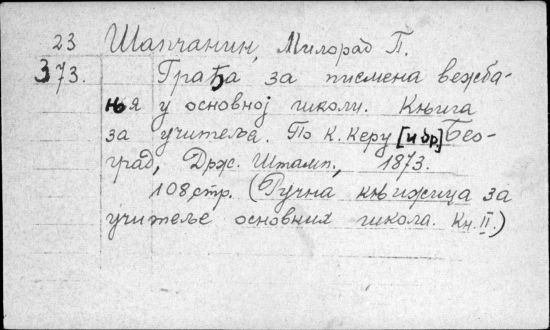 23 Шапчанин, Милорад П.
373. Грађа за писмена вежба-
ња у основној школи. Књига
за учитеља. По К. Керу [и др.] Бео-
град, Држ. Штамп., 1873.
108 стр. (Ручна књижица за
учитеље основних школа. Књ. II.)